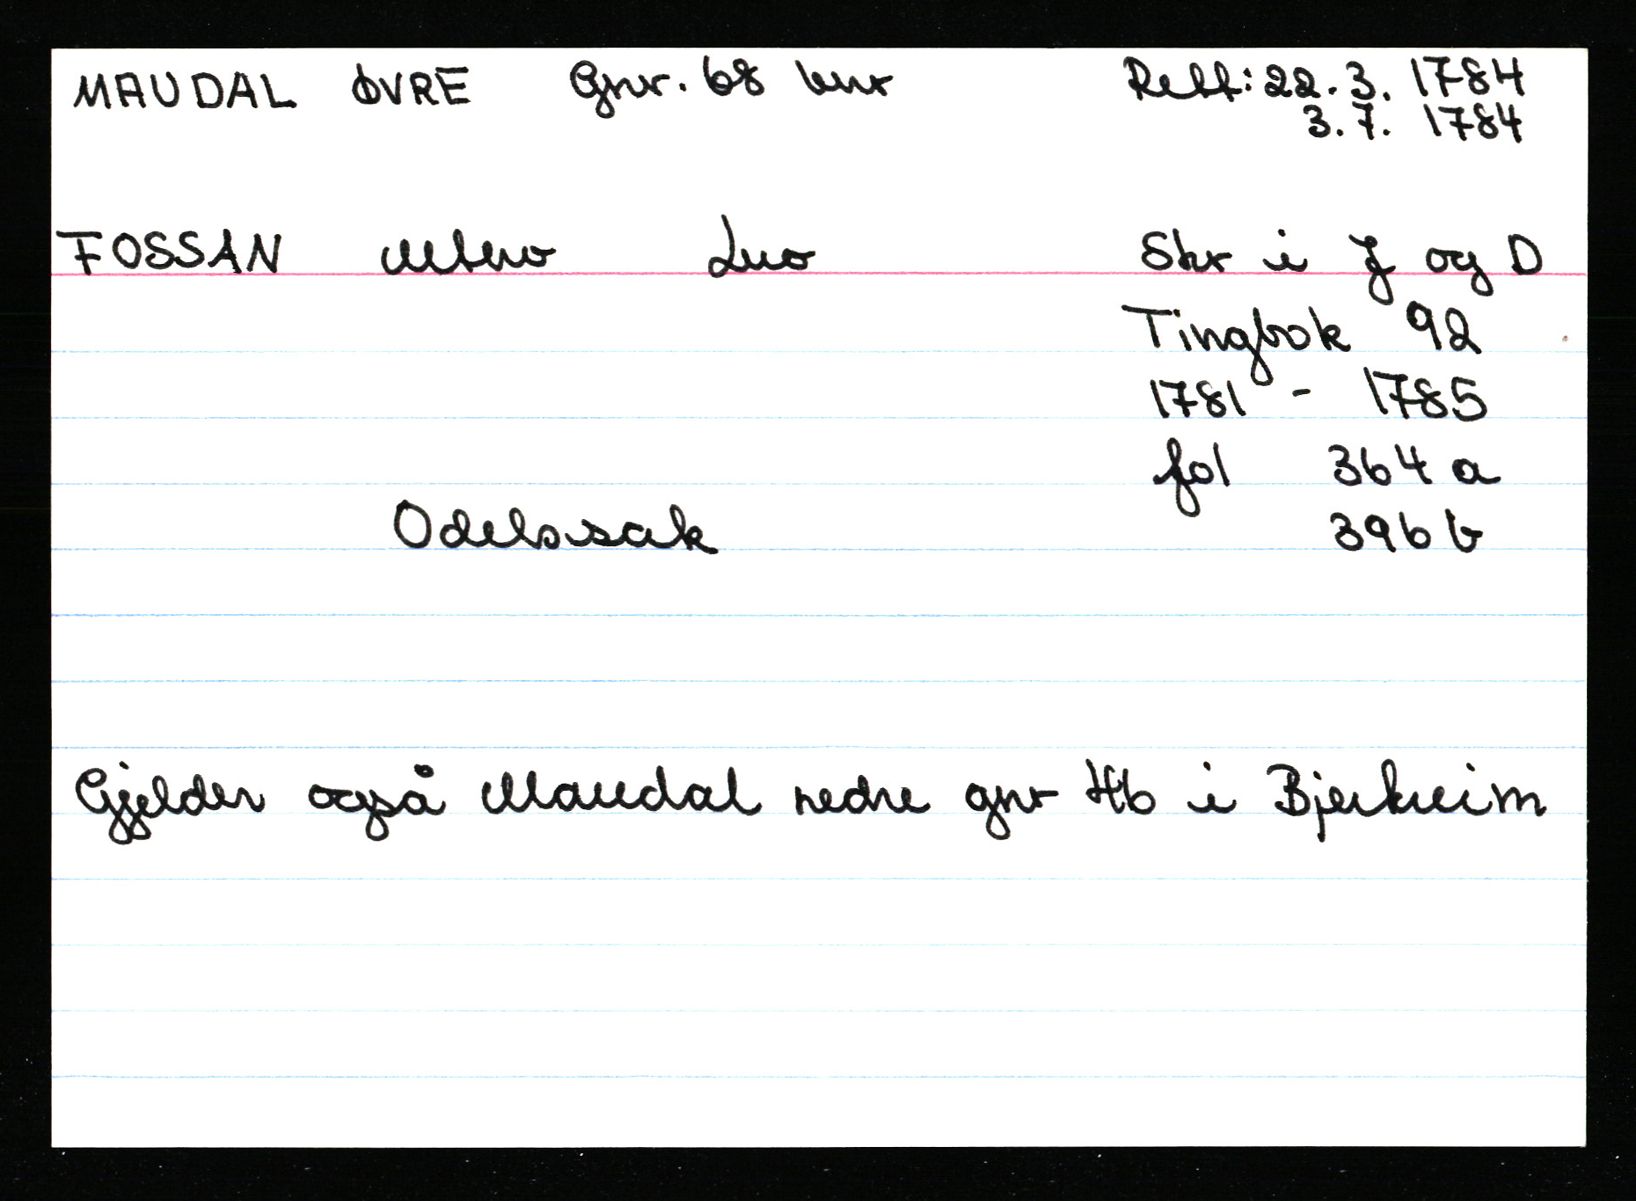 MAUDAL ØVRE Gnr. 68 bnr Rett: 22.3. 1784
3.7. 1784
FOSSAN Mtno Lno Skr i J og D
Tingbok 92
1781 - 1785
fol 364 a
Odelssak 396 b
Gjelder også Maudal nedre gnr 46 i Bjerkreim